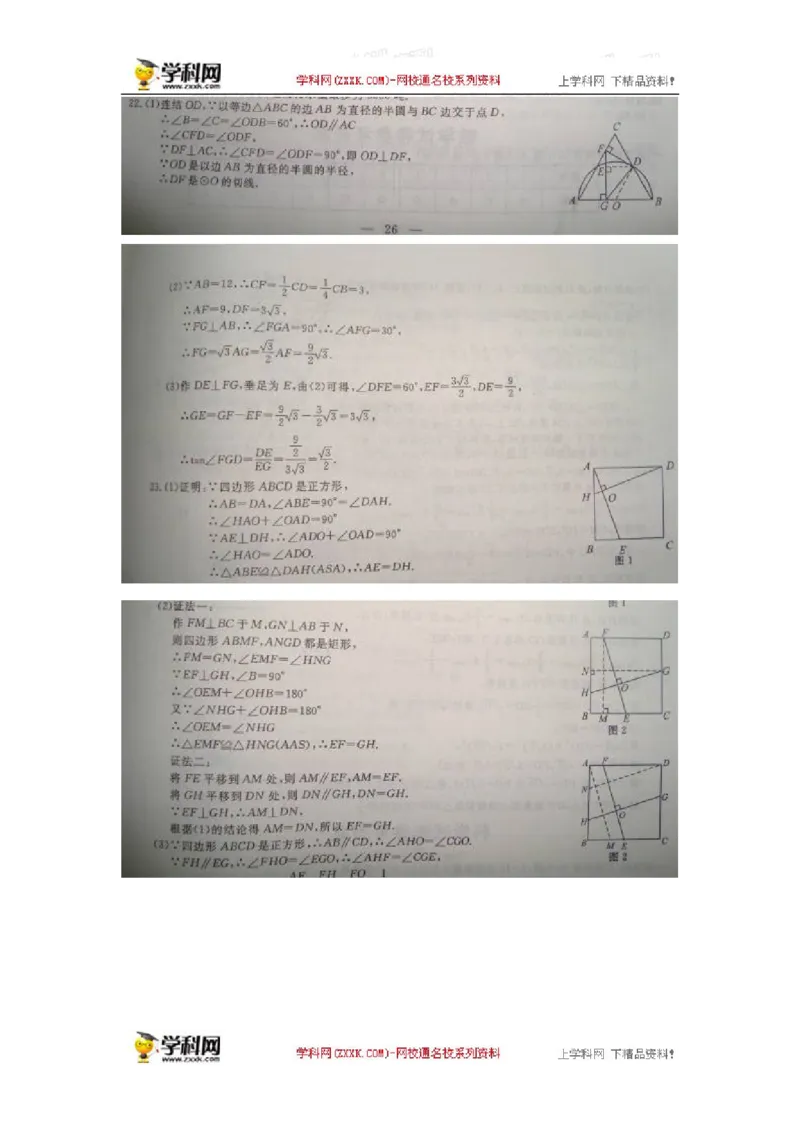 学科网
www.zxxk.com
学科网(ZXXK.COM)-网校通名校系列资料
上学科网 下精品资料!
22.(1)连结OD,∵以等边△ABC的边AB为直径的半圆与BC边交于点D,
∴∠B=∠C=∠ODB=60°,∴OD∥AC
∴∠CFD=∠ODF,
∵DF⊥AC,∴∠CFD=∠ODF=90°,即OD⊥DF,
∵OD是以边AB为直径的半圆的半径,
∴DF是⊙O的切线.
C
F
D
E
A
G O
B
— 26 —
(2)∵AB=12,∴CF=1/2CD=1/4CB=3,
∴AF=9,DF=3√3,
∵FG⊥AB,∴∠FGA=90°,∴∠AFG=30°,
∴FG=√3AG=√3/2AF=9/2√3.
(3)作DE⊥FG,垂足为E,由(2)可得,∠DFE=60°,EF=3√3/2,DE=9/2,
∴GE=GF-EF=9/2√3-3/2√3=3√3,
∴tan∠FGD=DE/EG=(9/2)/3√3=√3/2.
23.(1)证明:∵四边形ABCD是正方形,
∴AB=DA,∠ABE=90°=∠DAH.
∴∠HAO+∠OAD=90°
∵AE⊥DH,∴∠ADO+∠OAD=90°
∴∠HAO=∠ADO.
∴△ABE≌△DAH(ASA),∴AE=DH.
A
D
H
O
B
E
C
图1
图1
(2)证法一:
作FM⊥BC于M,GN⊥AB于N,
则四边形ABMF,ANGD都是矩形,
∴FM=GN,∠EMF=∠HNG
∵EF⊥GH,∠B=90°
∴∠OEM+∠OHB=180°
又∵∠NHG+∠OHB=180°
∴∠OEM=∠NHG
∴△EMF≌△HNG(AAS),∴EF=GH.
A F D
N
G
H
O
B M E C
图2
证法二:
将FE平移到AM处,则AM∥EF,AM=EF,
将GH平移到DN处,则DN∥GH,DN=GH.
∵EF⊥GH,∴AM⊥DN,
根据(1)的结论得AM=DN,所以EF=GH.
(3)∵四边形ABCD是正方形,∴AB∥CD,∴∠AHO=∠CGO.
∵FH∥EG,∴∠FHO=∠EGO,∴∠AHF=∠CGE,
AF FH FO 1
A F D
N
G
H
O
B M E C
图2
学科网
www.zxxk.com
学科网(ZXXK.COM)-网校通名校系列资料
上学科网 下精品资料!